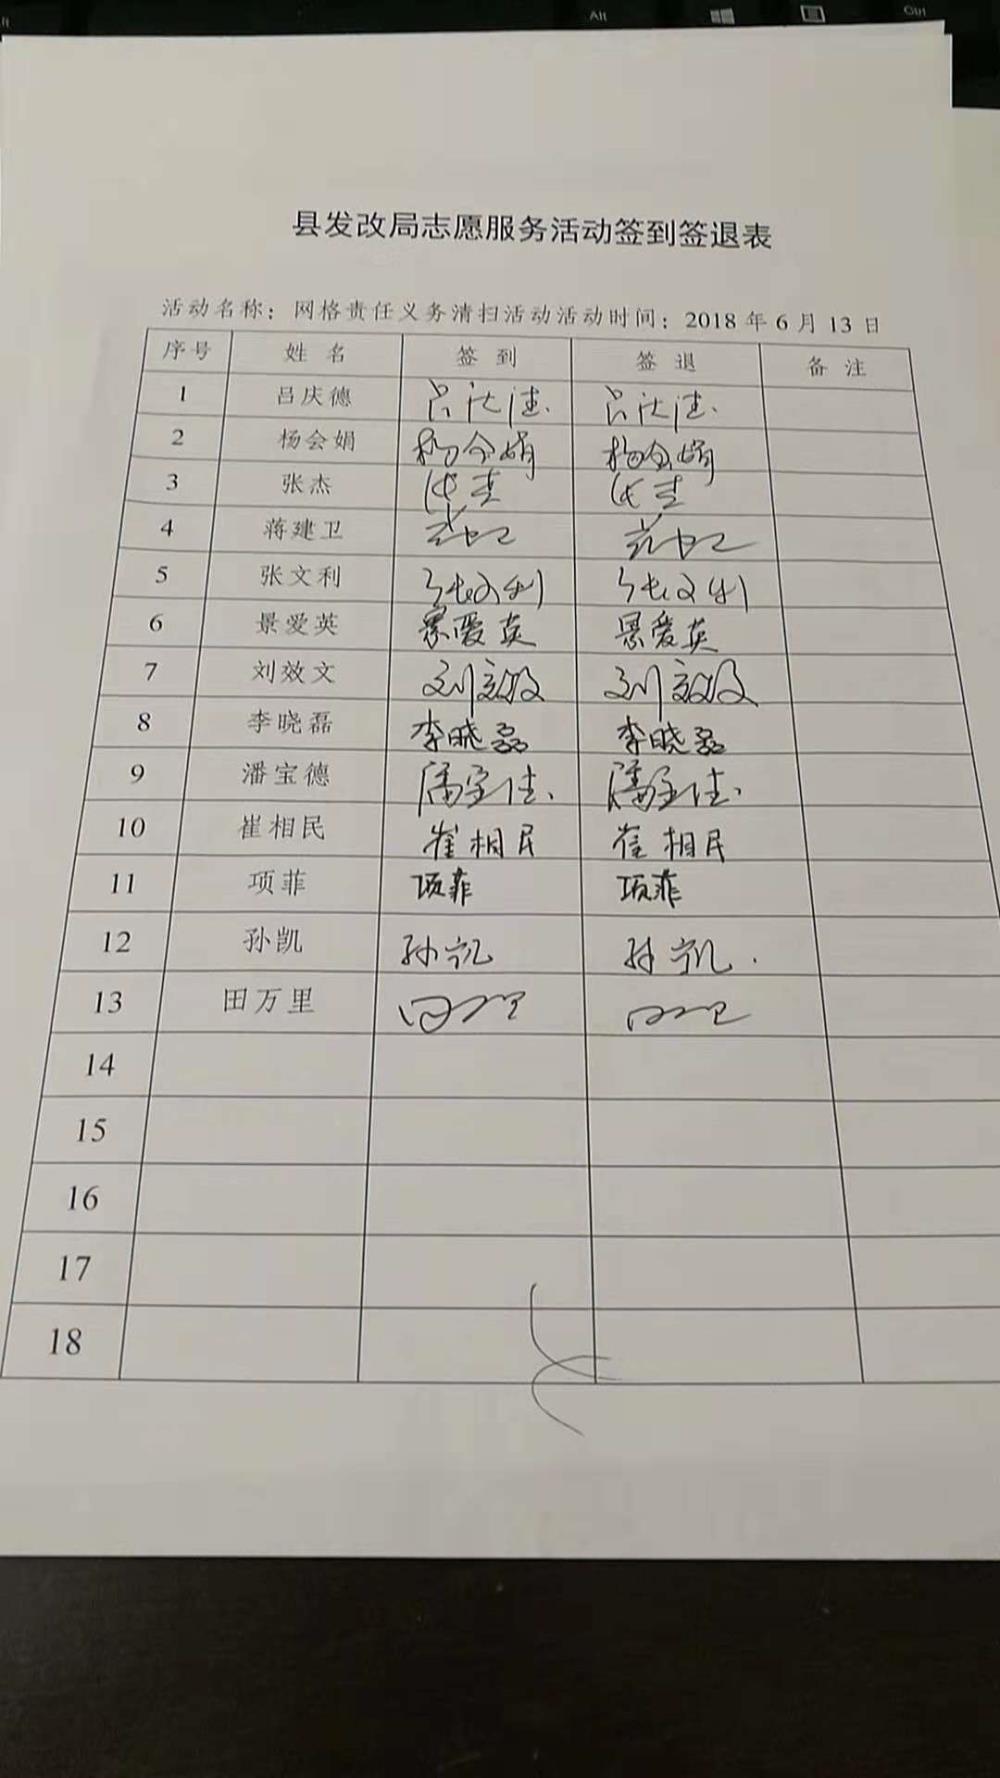 Alt
Ctrl
县发改局志愿服务活动签到签退表
活动名称：网格责任义务清扫活动活动时间：2018 年 6 月 13 日
序号 姓 名 签 到 签 退 备 注
1 吕庆德 吕庆德 吕庆德
2 杨会娟 杨会娟 杨会娟
3 张杰 张杰 张杰
4 蒋建卫
5 张文利 张文利 张文利
6 景爱英 景爱英 景爱英
7 刘效文 刘效文 刘效文
8 李晓磊 李晓磊 李晓磊
9 潘宝德 潘宝德 潘宝德
10 崔相民 崔相民 崔相民
11 项菲 项菲 项菲
12 孙凯 孙凯 孙凯
13 田万里
14
15
16
17
18